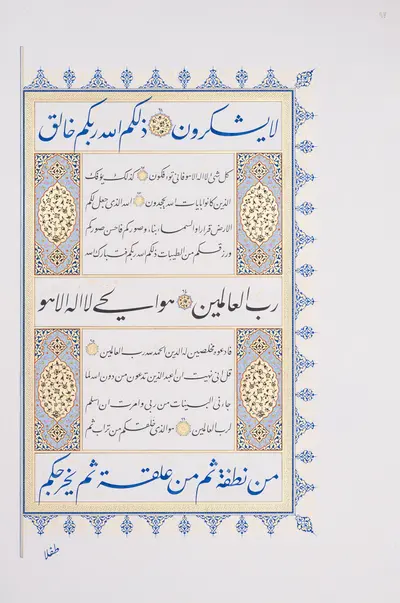 لا يشكرون ذلكم الله ربكم خالق
كل شئ لا اله الا هو فانى تؤفكون كذلك يؤفك
الذين كانوا بايات الله يجحدون الله الذى جعل لكم
الارض قرارا و السماء بناء و صوركم فاحسن صوركم
و رزقكم من الطيبات ذلكم الله ربكم فتبارك الله
رب العالمين هو الحى لا اله الا هو
فادعوه مخلصين له الدين الحمد لله رب العالمين
قل انى نهيت ان اعبد الذين تدعون من دون الله لما
جاءنى البينات من ربى و امرت ان اسلم
لرب العالمين هو الذى خلقكم من تراب ثم
من نطفة ثم من علقة ثم يخرجكم
طفلا